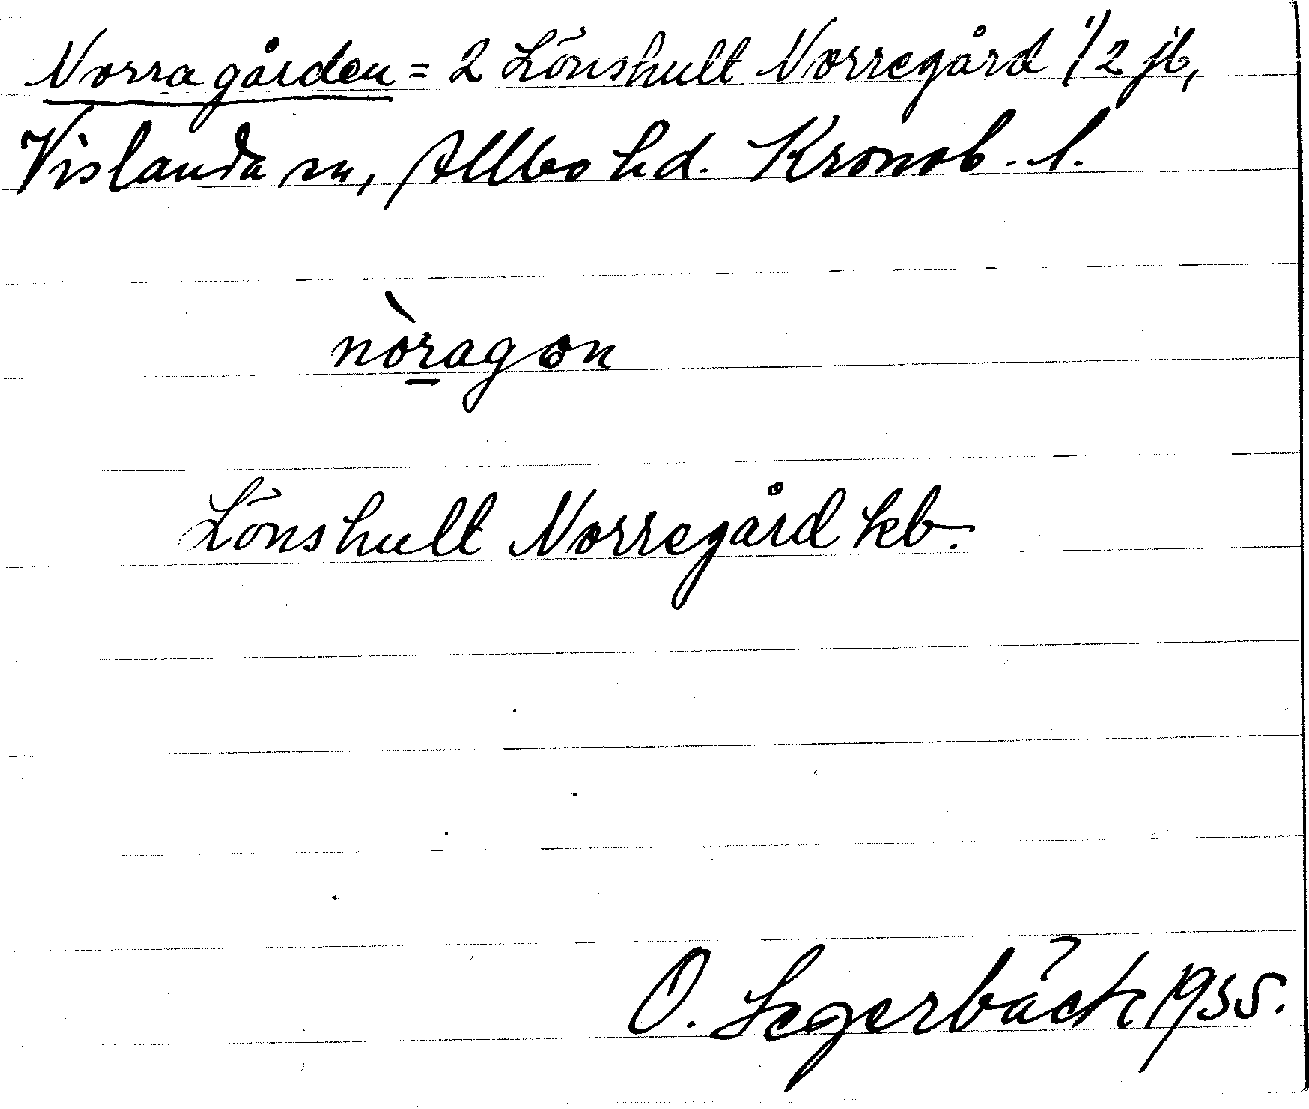 Norra gården = 2 Lönshult Norregård 1/2 jb,
Vislanda sn, Allbo hd. Kronob. l.
nòragon
Lönshult Norregård kb.
O. Segerbäck 1935.